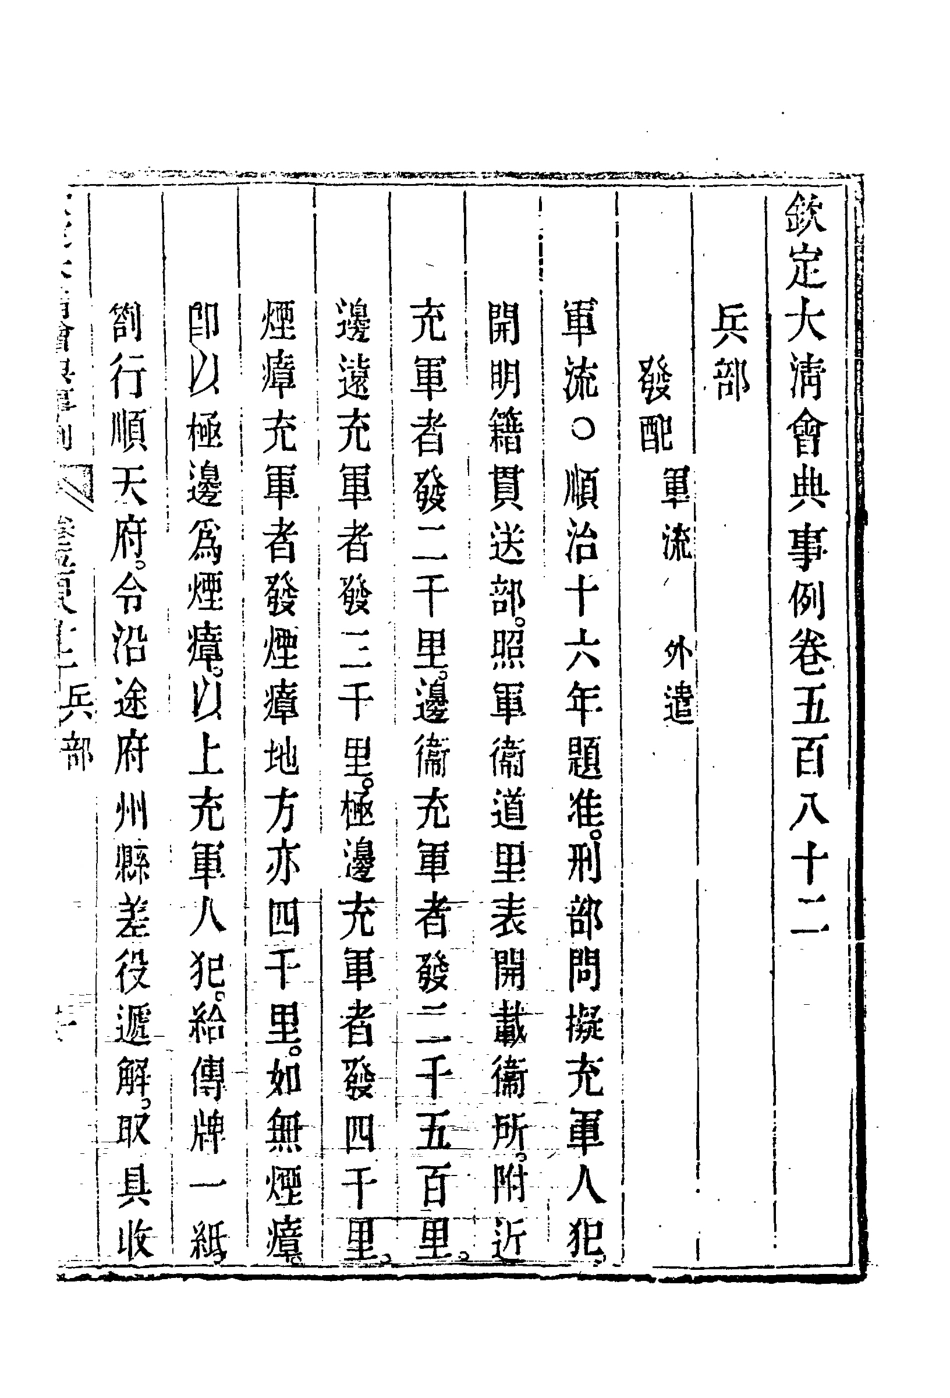 欽定大清會典事例卷五百八十二
兵部
發配 軍流 外遣
軍流○順治十六年題准。刑部問擬充軍人犯。
開明籍貫送部。照軍衞道里表開載衞所。附近
充軍者發二千里。邊衞充軍者發二千五百里。
邊遠充軍者發三千里。極邊充軍者發四千里。
煙瘴充軍者發煙瘴地方亦四千里。如無煙瘴。
卽以極邊爲煙瘴。以上充軍人犯。給傳牌一紙。
劄行順天府。令沿途府州縣差役遞解。取具收
大清會典事例 卷五百八十二 兵部 一